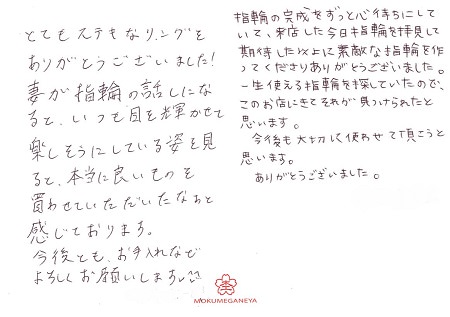 とてもステキなリングを
ありがとうございました!
妻が指輪の話しにな
ると、いつも目を輝かせて
楽しそうにしている姿を見
ると、本当に良いものを
買わせていただいたなぁと
感じております。
今後とも、お手入れなど
よろしくお願いします。
指輪の完成をずっと心待ちにして
いて、来店した今日指輪を拝見して
期待した以上に素敵な指輪を作
ってくださりありがとうございました。
一生使える指輪を探していたので、
このお店にきてそれが見つけられたと
思います。
今後も大切に使わせて頂こうと
思います。
ありがとうございました。
MOKUMEGANEYA